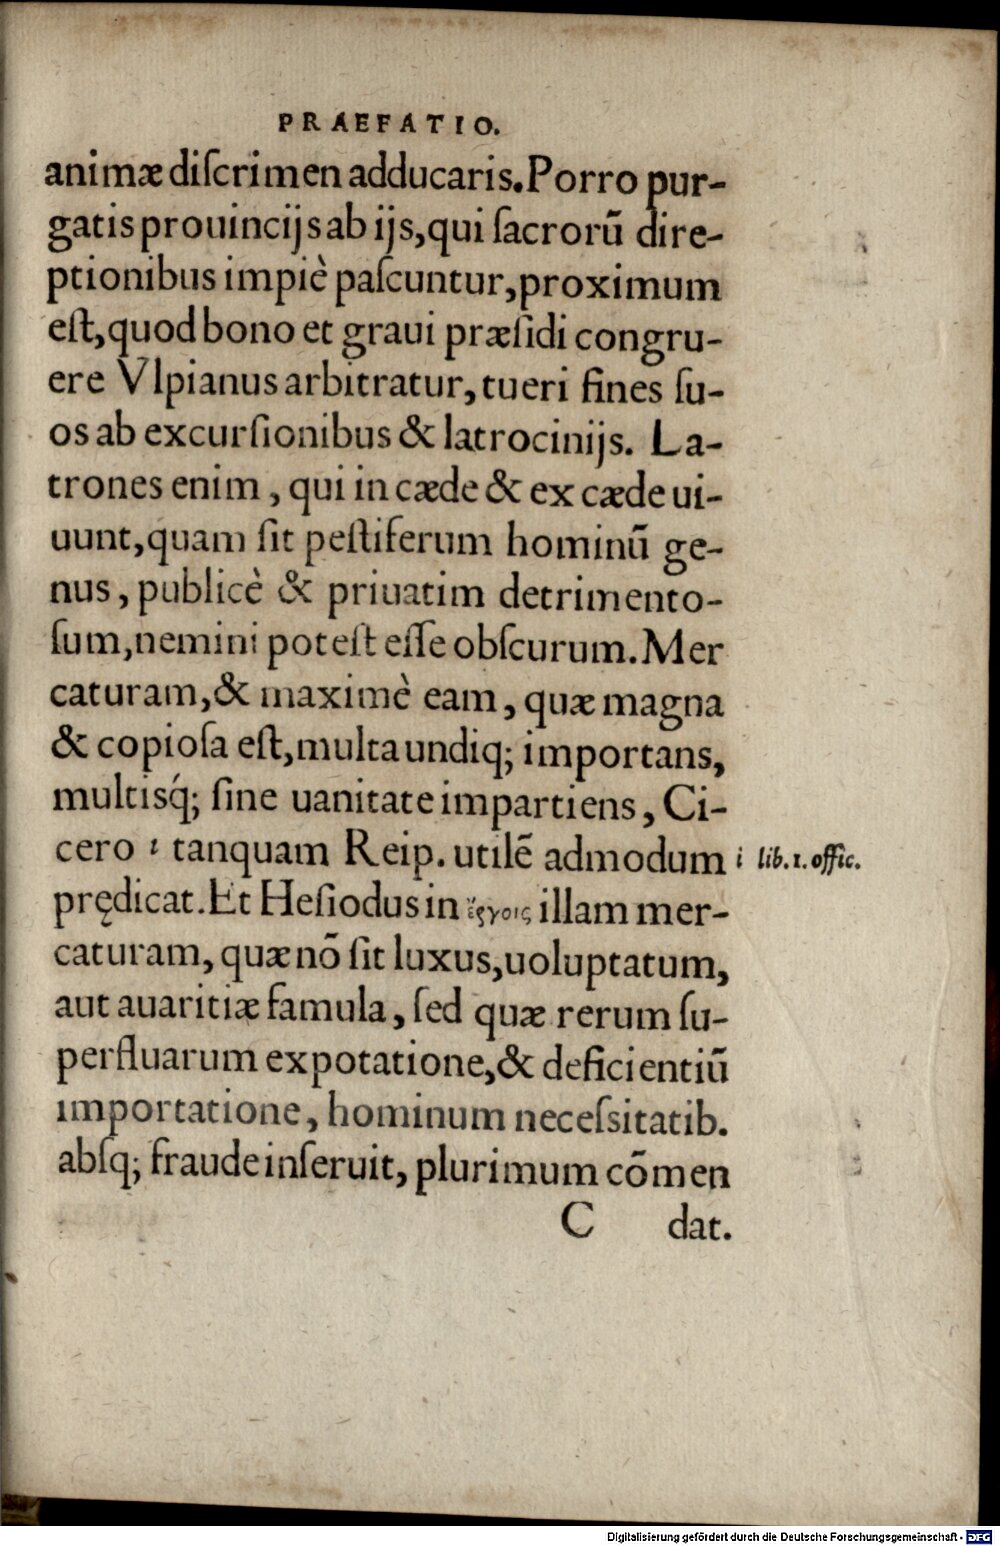 PRAEFATIO.
animæ diſcrimen adducaris. Porro pur-
gatis prouincijs ab ijs, qui ſacrorũ dire-
ptionibus impiè paſcuntur, proximum
eſt, quod bono et graui præſidi congru-
ere Vlpianus arbitratur, tueri fines ſu-
os ab excurſionibus & latrocinijs. La-
trones enim, qui in cæde & ex cæde ui-
uunt, quam ſit peſtiferum hominũ ge-
nus, publicè & priuatim detrimento-
ſum, nemini poteſt eſſe obſcurum. Mer
caturam, & maximè eam, quæ magna
& copioſa eſt, multa undiq; importans,
multisq́; ſine uanitate impartiens, Ci-
cero i tanquam Reip. utilẽ admodum
i lib. 1. offic.
prędicat. Et Heſiodus in ἔργοις illam mer-
caturam, quæ nõ ſit luxus, uoluptatum,
aut auaritiæ famula, ſed quæ rerum ſu-
perfluarum expotatione, & deficientiũ
importatione, hominum neceſsitatib.
abſq; fraude inſeruit, plurimum cõmen
C dat.
Digitalisierung gefördert durch die Deutsche Forschungsgemeinschaft - DFG